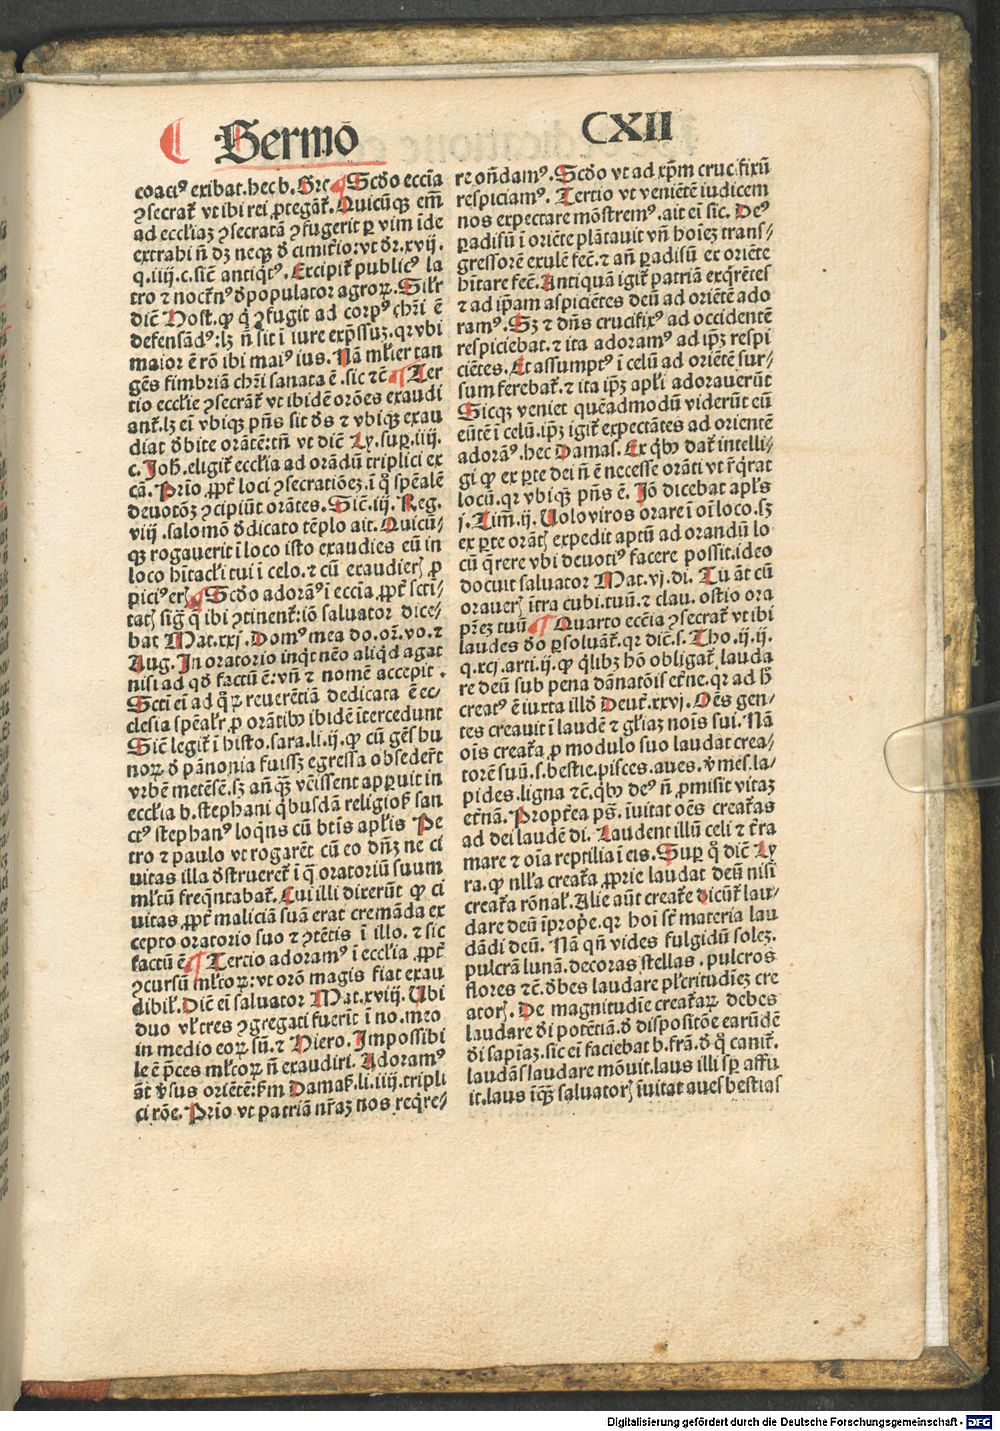 Sermõ CXII
coaciꝰ exibat.hec b.Gre ¶ Scďo eccĩa
ꝯsecrať vt ibi rei ꝓtegãť.Quicũqꝫ em̃
ad eccĺiaꝫ ꝯsecratã ꝯfugerit ꝑ vim ĩde
extrahi ñ dꝫ neqꝫ ď cimiťio:vt ďr.xvij.
q.iiij.c.sicẽ antiq̇tꝰ.Excipiť publicꝰ la
tro ⁊ nocťnꝰ ďpopulator agroꝝ.Silr̃
dicẽ Host.ꝙ q̇ ꝯfugit ad corpꝰ chr̃i ẽ
defensãdꝰ:lꝫ ñ sit ĩ iure exp̃ssuꝫ.qꝛ vbi
maior ẽ rõ ibi maiꝰ ius.Nã mĺier tan
gẽs fimbriã chr̃i sanata ẽ.sic ⁊c̃ ¶ Ter
tio eccĺie ꝯsecrãť vt ibidẽ orões exaudi
anť.lꝫ ei vbiqꝫ pñs sit ďs ⁊ vbiqꝫ exau
diat ďbite orãtẽ:tñ vt dicẽ Ly.suꝑ.iiij.
c.Joh̃.eligiť eccĺia ad orãdũ triplici ex
cã.Prĩo ꝓpť loci ꝯsecratiõeꝫ.ĩ q̊ speãlẽ
deuotõꝫ ꝯcipiũt orãtes.Sicẽ.iij.Reg̃.
viij.salomõ ďdicato tẽplo ait.Quicũ⸗
qꝫ rogauerit ĩ loco isto exaudies eũ in
loco hĩtacĺi tui ĩ celo.⁊ cũ exaudierꝭ ꝓ
piciꝰ erꝭ ¶ Scďo adorãꝰ ĩ eccĩa ꝓpť scti⸗
tatꝭ sig̃ q̃ ibi ꝯtinenť:iõ saluator dice⸗
bat Mat.xxj.Domꝰ mea do.or̃.vo.⁊
Aug.In oratorio inq̇t nẽo aliq̇d agat
nisi ad qď factũ ẽ:vñ ⁊ nomẽ accepit.
Scti ei ad q̊ꝝ reuerẽtiã dedicata ẽ ec⸗
clesia spẽalr̃ ꝓ orãtibꝰ ibidẽ ĩtercedunt
Sicẽ legiť ĩ histo.sara.li.ij.ꝙ cũ gẽs hu
noꝝ ď pãnonia fuissꝫ egressa obsederẽt
vrbẽ metẽsẽ.sꝫ añq̃ꝫ vẽissent apꝑuit in
eccĺia b.stephani q̇busdã religioß san
ctꝰ stephanꝰ loq̃ns cũ btĩs apĺis Pe
tro ⁊ paulo vt rogarẽt cũ eo dñꝫ ne ci
uitas illa ďstrueret ĩ q̃ oratoriũ suum
mĺtũ freq̃ntabať.Cui illi dixerũt ꝙ ci
uitas ꝓpť maliciã suã erat cremãda ex
cepto oratorio suo ⁊ ꝯtẽtis ĩ illo.⁊ sic
factũ ẽ ¶ Tercio adoramꝰ ĩ eccĺia ꝓpť
ꝯcursũ mĺtoꝝ:vt orõ magis fiat exau
dibiĺ.Dicẽ ei saluator Mat.xviij.Ubi
duo vĺ tres ꝯgregati fuerĩt ĩ no.meo
in medio eoꝝ sũ.⁊ Hiero.Impossibi
le ẽ p̃ces mĺtoꝝ ñ exaudiri.Adoramꝰ
ãt v̾sus oriẽtẽ:ẜm Damaß.li.iiij.tripli
ci rõe.Prĩo vt patriã nr̃aꝫ nos req̃re⸗
re oñdamꝰ.Scďo vt ad xp̃m crucifixũ
respiciamꝰ.Tertio vt veniẽtẽ iudicem
nos expectare mõstremꝰ.ait ei sic.Deꝰ
ꝑadisũ ĩ oriẽte plãtauit vñ hoĩeꝫ trans⸗
gressorẽ exulẽ fec̃.⁊ añ ꝑadisũ ex oriẽte
hĩtare fec̃.Antiquã igiť patriã exq̃rẽtes
⁊ ad ip̃am aspiciẽtes deũ ad oriẽtẽ ado
ramꝰ.Sꝫ ⁊ dñs crucifixꝰ ad occidentẽ
respiciebat.⁊ ita adoramꝰ ad ip̃ꝫ respi
ciẽtes.Et assumptꝰ ĩ celũ ad oriẽtẽ sur⸗
sum ferebať.⁊ ita ip̃ꝫ apĺi adorauerũt
Sicqꝫ veniet quẽadmodũ viderũt eũ
eũtẽ ĩ celũ.ip̃ꝫ igiť expectãtes ad orientẽ
adorãꝰ.hec Damas.Ex q̇bꝰ dať intelli⸗
gi ꝙ ex ꝑte dei ñ ẽ necesse orãti vt r̃q̇rat
locũ.qꝛ vbiqꝫ pñs ẽ.Jõ dicebat apĺs
j.Tim̃.ij.Uolo viros orare ĩ oĩ loco.sꝫ
ex ꝑte orãtꝭ expedit aptũ ad orandũ lo
cũ q̃rere vbi deuotiꝰ facere possit.ideo
docuit saluator Mat.vj.di.Tu ãt cũ
orauerꝭ ĩtra cubi.tuũ.⁊ clau.ostio ora
pr̃eꝫ tuũ ¶ Quarto eccĩa ꝯsecrať vt ibi
laudes ďo ꝑsoluãť.qꝛ dicẽ.s.Tho.ij.ij.
q.xcj.arti.ij.ꝙ q̇libꝫ hõ obligať lauda
re deũ sub pena dãnatõis eťne.qꝛ ad h̾
creatꝰ ẽ iuxta illď Deuť.xxvj.Oẽs gen⸗
tes creauit ĩ laudẽ ⁊ gĺiaꝫ noĩs sui.Nã
oĩs creať̃a ꝓ modulo suo laudat crea⸗
torẽ suũ.s.bestie.pisces.aues.v̾mes.la⸗
pides.ligna ⁊c̃.q̇bꝰ deꝰ ñ ꝓmisit vitaꝫ
eťnã.Propťea ps̃.ĩuitat oẽs creať̃as
ad dei laudẽ di.Laudent illũ celi ⁊ tr̃a
mare ⁊ oĩa reptilia ĩ eis.Suꝑ q̊ dicẽ Ly
ra.ꝙ nĺla creať̃a ꝓprie laudat deũ nisi
creať̃a rõnaĺ.Alie aũt creať̃e dicũť lau⸗
dare deũ ĩprop̃e.qꝛ hoĩ sť̃ materia lau
dãdi deũ.Nã qñ vides fulgidũ soleꝫ.
pulcrã lunã.decoras stellas.pulcros
flores ⁊c̃.ďbes laudare pĺcritudĩeꝫ cre
atorꝭ.De magnitudĩe creať̃aꝝ debes
laudare ďi potẽtiã.ď dispositõe earũdẽ
ďi sapiãꝫ.sic ei faciebat b.frã.ď q̊ caniť.
laudãs laudare mõuit.laus illi sꝑ affu
it.laus ĩq̃ꝫ saluatorꝭ ĩuitat aues bestias
Digitalisierung gefördert durch die Deutsche Forschungsgemeinschaft - DFG